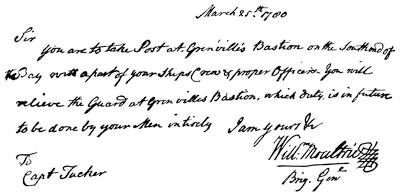 March 25.th 1780
Sir
You are to take Post at Grenvilles Bastion on the South end of
the Bay with a part of your Ships Crew & proper Officers. You will
relieve the Guard at Grenvilles Bastion, which Duty, is in future
to be done by your Men intirely I am yours &
Will.m Moultrie
Brig. Gen.l
To
Capt Tucker